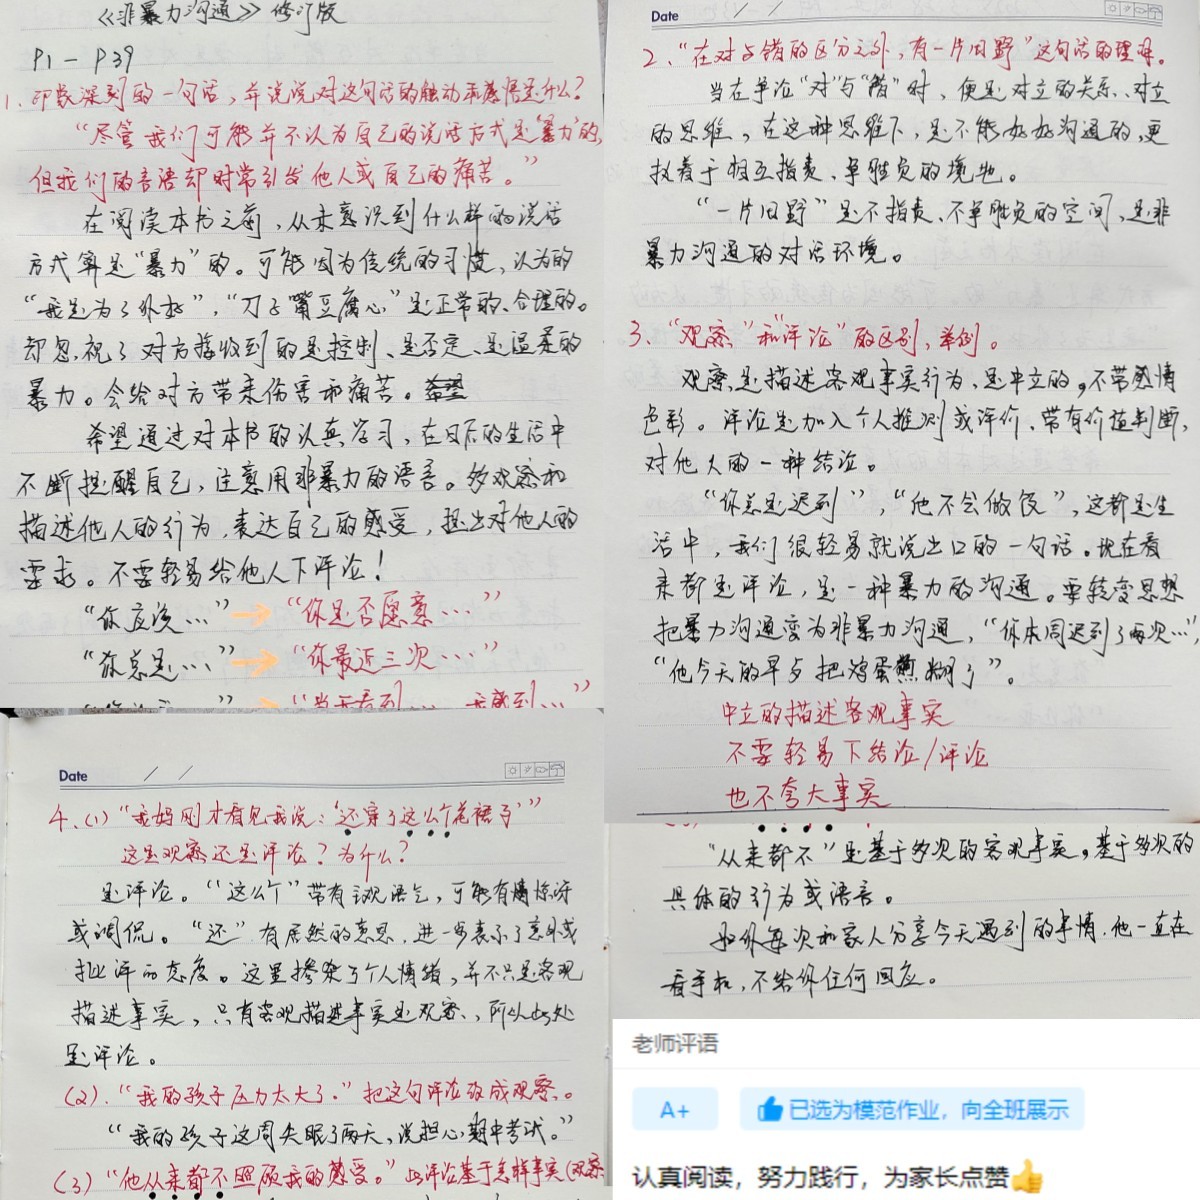 《非暴力沟通》修订版
P1 - P39
1. 印象深刻的一句话，并说说对这句话的触动和感悟是什么？
“尽管我们可能并不认为自己的说话方式是“暴力”的，
但我们的言语却时常引发他人或自己的痛苦。”
在阅读本书之前，从未意识到什么样的说话
方式算是“暴力”的。可能因为传统的习惯，认为的
“我是为了你好”，“刀子嘴豆腐心”是正常的、合理的。
却忽视了对方接收到的是控制、是否定、是温柔的
暴力。会给对方带来伤害和痛苦。
希望通过对本书的认真学习，在日后的生活中
不断提醒自己，注意用非暴力的语言。多观察和
描述他人的行为，表达自己的感受，提出对他人的
要求。不要轻易给他人下评论！
“你应该...”→“你是否愿意....”
“你总是....”→“你最近三次....”
“当我看到....，我感到...”
Date / /
2、“在对与错的区分之外，有一片田野”这句话的理解。
当在争论“对”与“错”时，便是对立的关系、对立
的思维，在这种思维下，是不能好好沟通的，更
执着于相互指责、争胜负的境地。
“一片田野”是不指责、不争胜负的空间，是非
暴力沟通的对话环境。
3、“观察”和“评论”的区别，举例。
观察是描述客观事实行为、是中立的，不带感情
色彩。评论是加入个人推测或评价、带有价值判断，
对他人的一种结论。
“你总是迟到”，“他不会做饭”，这都是生
活中，我们很轻易就说出口的一句话。现在看
来都是评论，是一种暴力的沟通。要转变思想
把暴力沟通变为非暴力沟通，“你本周迟到了两次...”
“他今天的早点把鸡蛋煎糊了”。
中立的描述客观事实
不要轻易下结论/评论
也不夸大事实
Date / /
4、(1)“我妈刚才看见我说：‘还穿了这么个花裙子’”
这是观察还是评论？为什么？
是评论。“这么个”带有主观语气，可能有惊讶
或调侃。“还”有居然的意思，进一步表示了意外或
批评的态度。这里掺杂了个人情绪，并不只是客观
描述事实，只有客观描述事实是观察，所以此处
是评论。
(2).“我的孩子压力太大了。”把这句评论改成观察。
“我的孩子这周失眠了两天，说担心期中考试。”
(3)“他从来都不照顾我的感受。”此评论基于怎样事实(观察
“从来都不”是基于多次的客观事实，基于多次的
具体的行为或语言。
如你每次和家人分享今天遇到的事情，他一直在
看手机，不给你任何回应。
老师评语
A+
已选为模范作业，向全班展示
认真阅读，努力践行，为家长点赞